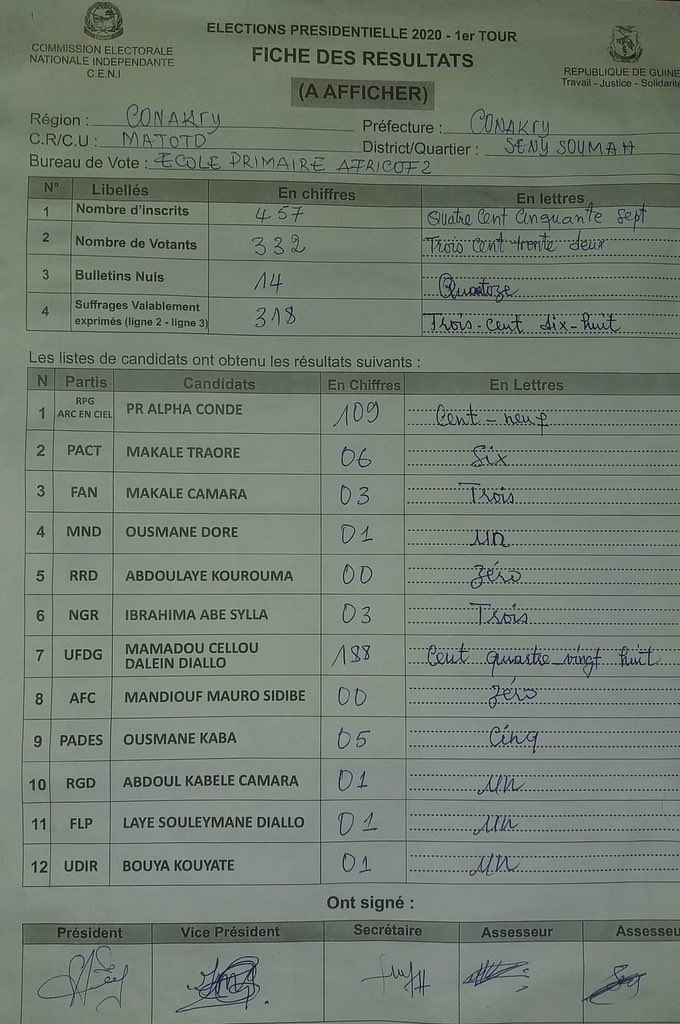 COMMISSION ELECTORALE
NATIONALE INDEPENDANTE
C.E.N.I
ELECTIONS PRESIDENTIELLE 2020 - 1er TOUR
FICHE DES RESULTATS
(A AFFICHER)
REPUBLIQUE DE GUINE
Travail - Justice - Solidarité
Région : CONAKRY
Préfecture : CONAKRY
C.R/C.U : MATOTO
District/Quartier : SENY SOUMAH
Bureau de Vote : ECOLE PRIMAIRE AFRICOF2
N° Libellés En chiffres En lettres
1 Nombre d'inscrits 457 Quatre Cent Cinquante sept
2 Nombre de Votants 332 Trois cent trente deux
3 Bulletins Nuls 14 Quatoze
4 Suffrages Valablement exprimés (ligne 2 - ligne 3) 318 Trois-cent dix-huit
Les listes de candidats ont obtenu les résultats suivants :
N Partis Candidats En Chiffres En Lettres
1 RPG ARC EN CIEL PR ALPHA CONDE 109 Cent-neuf
2 PACT MAKALE TRAORE 06 Six
3 FAN MAKALE CAMARA 03 Trois
4 MND OUSMANE DORE 01 un
5 RRD ABDOULAYE KOUROUMA 00 zéro
6 NGR IBRAHIMA ABE SYLLA 03 Trois
7 UFDG MAMADOU CELLOU DALEIN DIALLO 188 Cent quastre-vingt huit
8 AFC MANDIOUF MAURO SIDIBE 00 zéro
9 PADES OUSMANE KABA 05 Cinq
10 RGD ABDOUL KABELE CAMARA 01 un
11 FLP LAYE SOULEYMANE DIALLO 01 un
12 UDIR BOUYA KOUYATE 01 un
Ont signé :
Président Vice Président Secrétaire Assesseur Assesseu